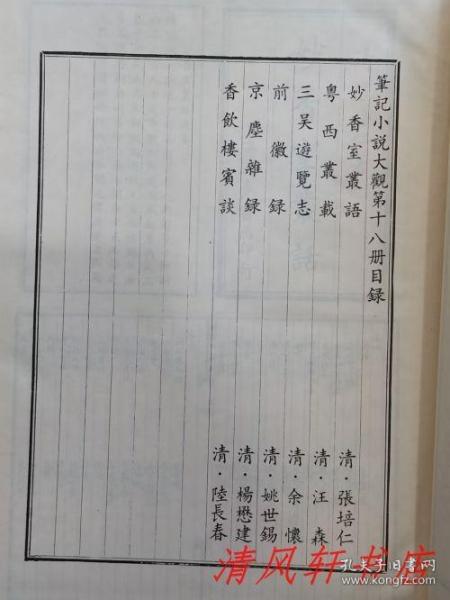 筆記小説大觀第十八册目録
妙香室叢語 清·張培仁
粤西叢載 清·汪森
三吴遊覽志 清·余懷
前徽録 清·姚世錫
京塵雜録 清·楊懋建
香飲樓賓談 清·陸長春
清风轩书店
孔夫子旧书网
www.kongfz.com